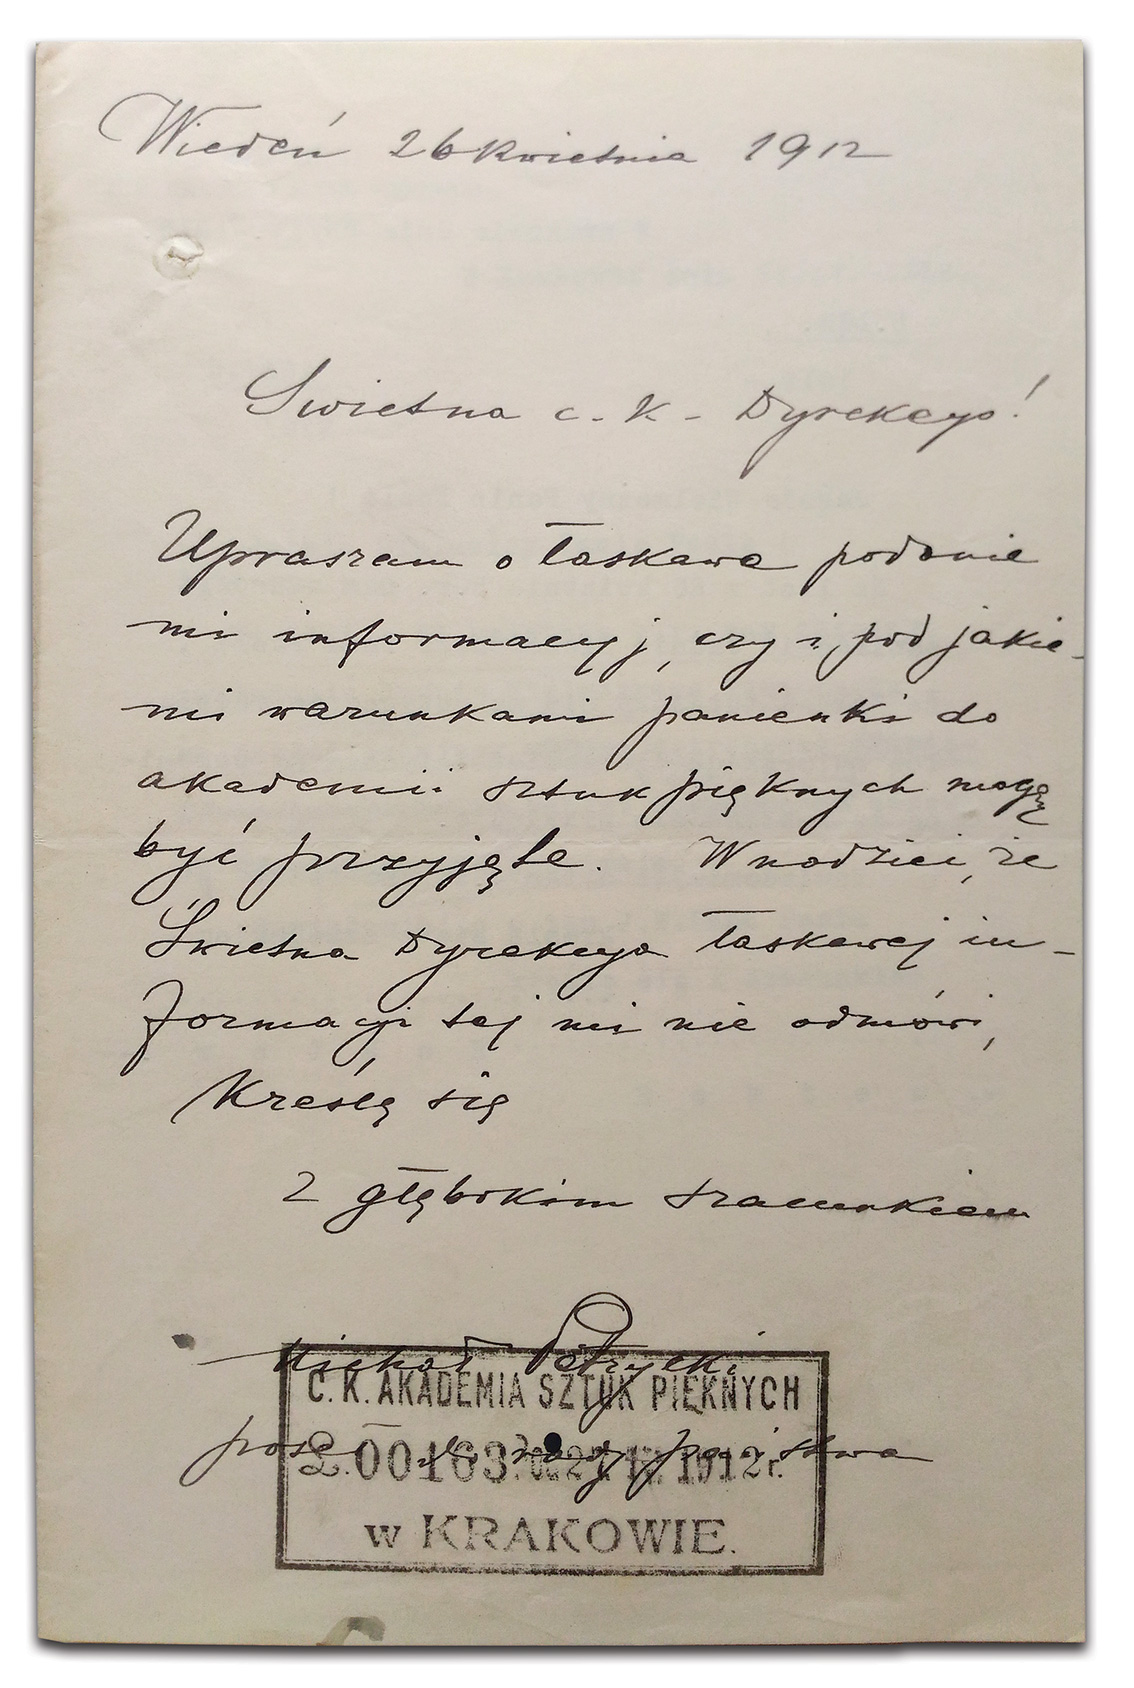 Wiedeń 26 kwietnia 1912
Świetna c. k. Dyrekcyo!
Upraszam o łaskawe podanie
mi informacyj, czy i pod jakie-
mi warunkami panienki do
akademii sztuk pięknych mogą
być przyjęte. W nadziei, że
Świetna Dyrekcya łaskawej in-
formacyi tej mi nie odmówi,
Kreślę się
z głębokim szacunkiem
Michał Petrycki
poseł do rady państwa
C. K. AKADEMIA SZTUK PIĘKNYCH
L. 00163 1912 r.
w KRAKOWIE.